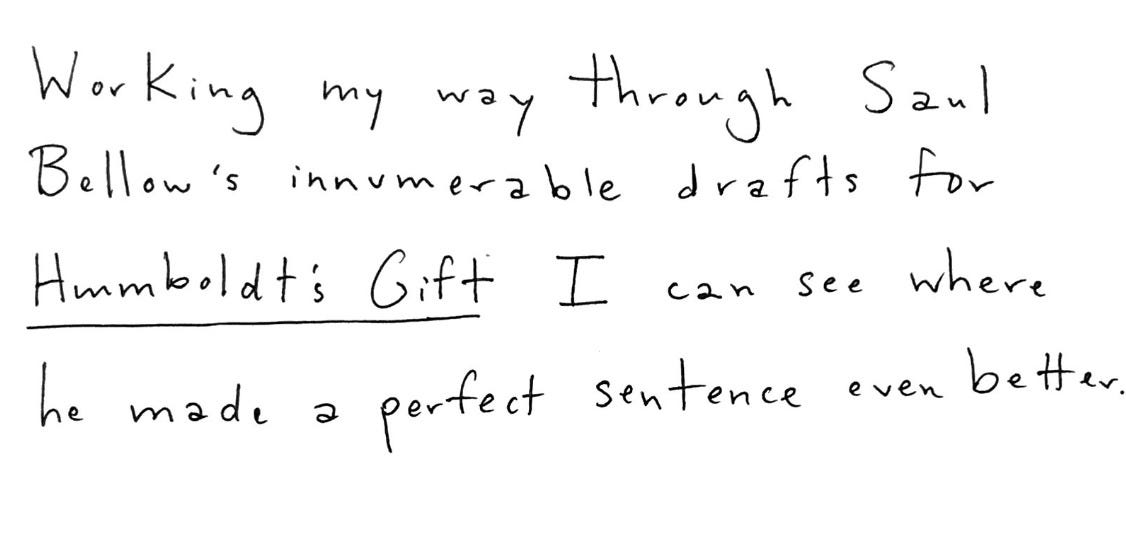 Working my way through Saul
Bellow's innumerable drafts for
Humboldt's Gift I can see where
he made a perfect sentence even better.